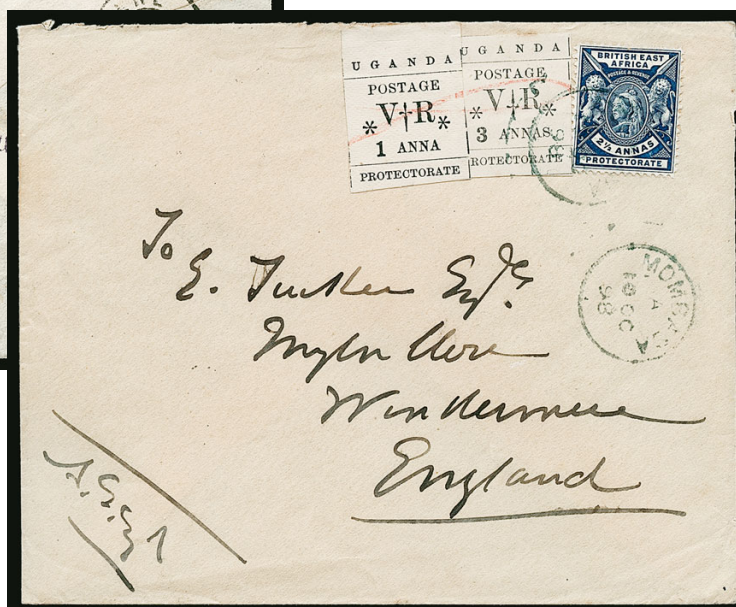 UGANDA
POSTAGE
*V†R*
1 ANNA
PROTECTORATE
UGANDA
POSTAGE
V†R*
3 ANNAS
ROTECTORATE
BRITISH EAST
AFRICA
POSTAGE & REVENUE
2½ ANNAS
PROTECTORATE
MOMBASA
A
OC
98
To
E. Tucker Esqre
Windermere
England